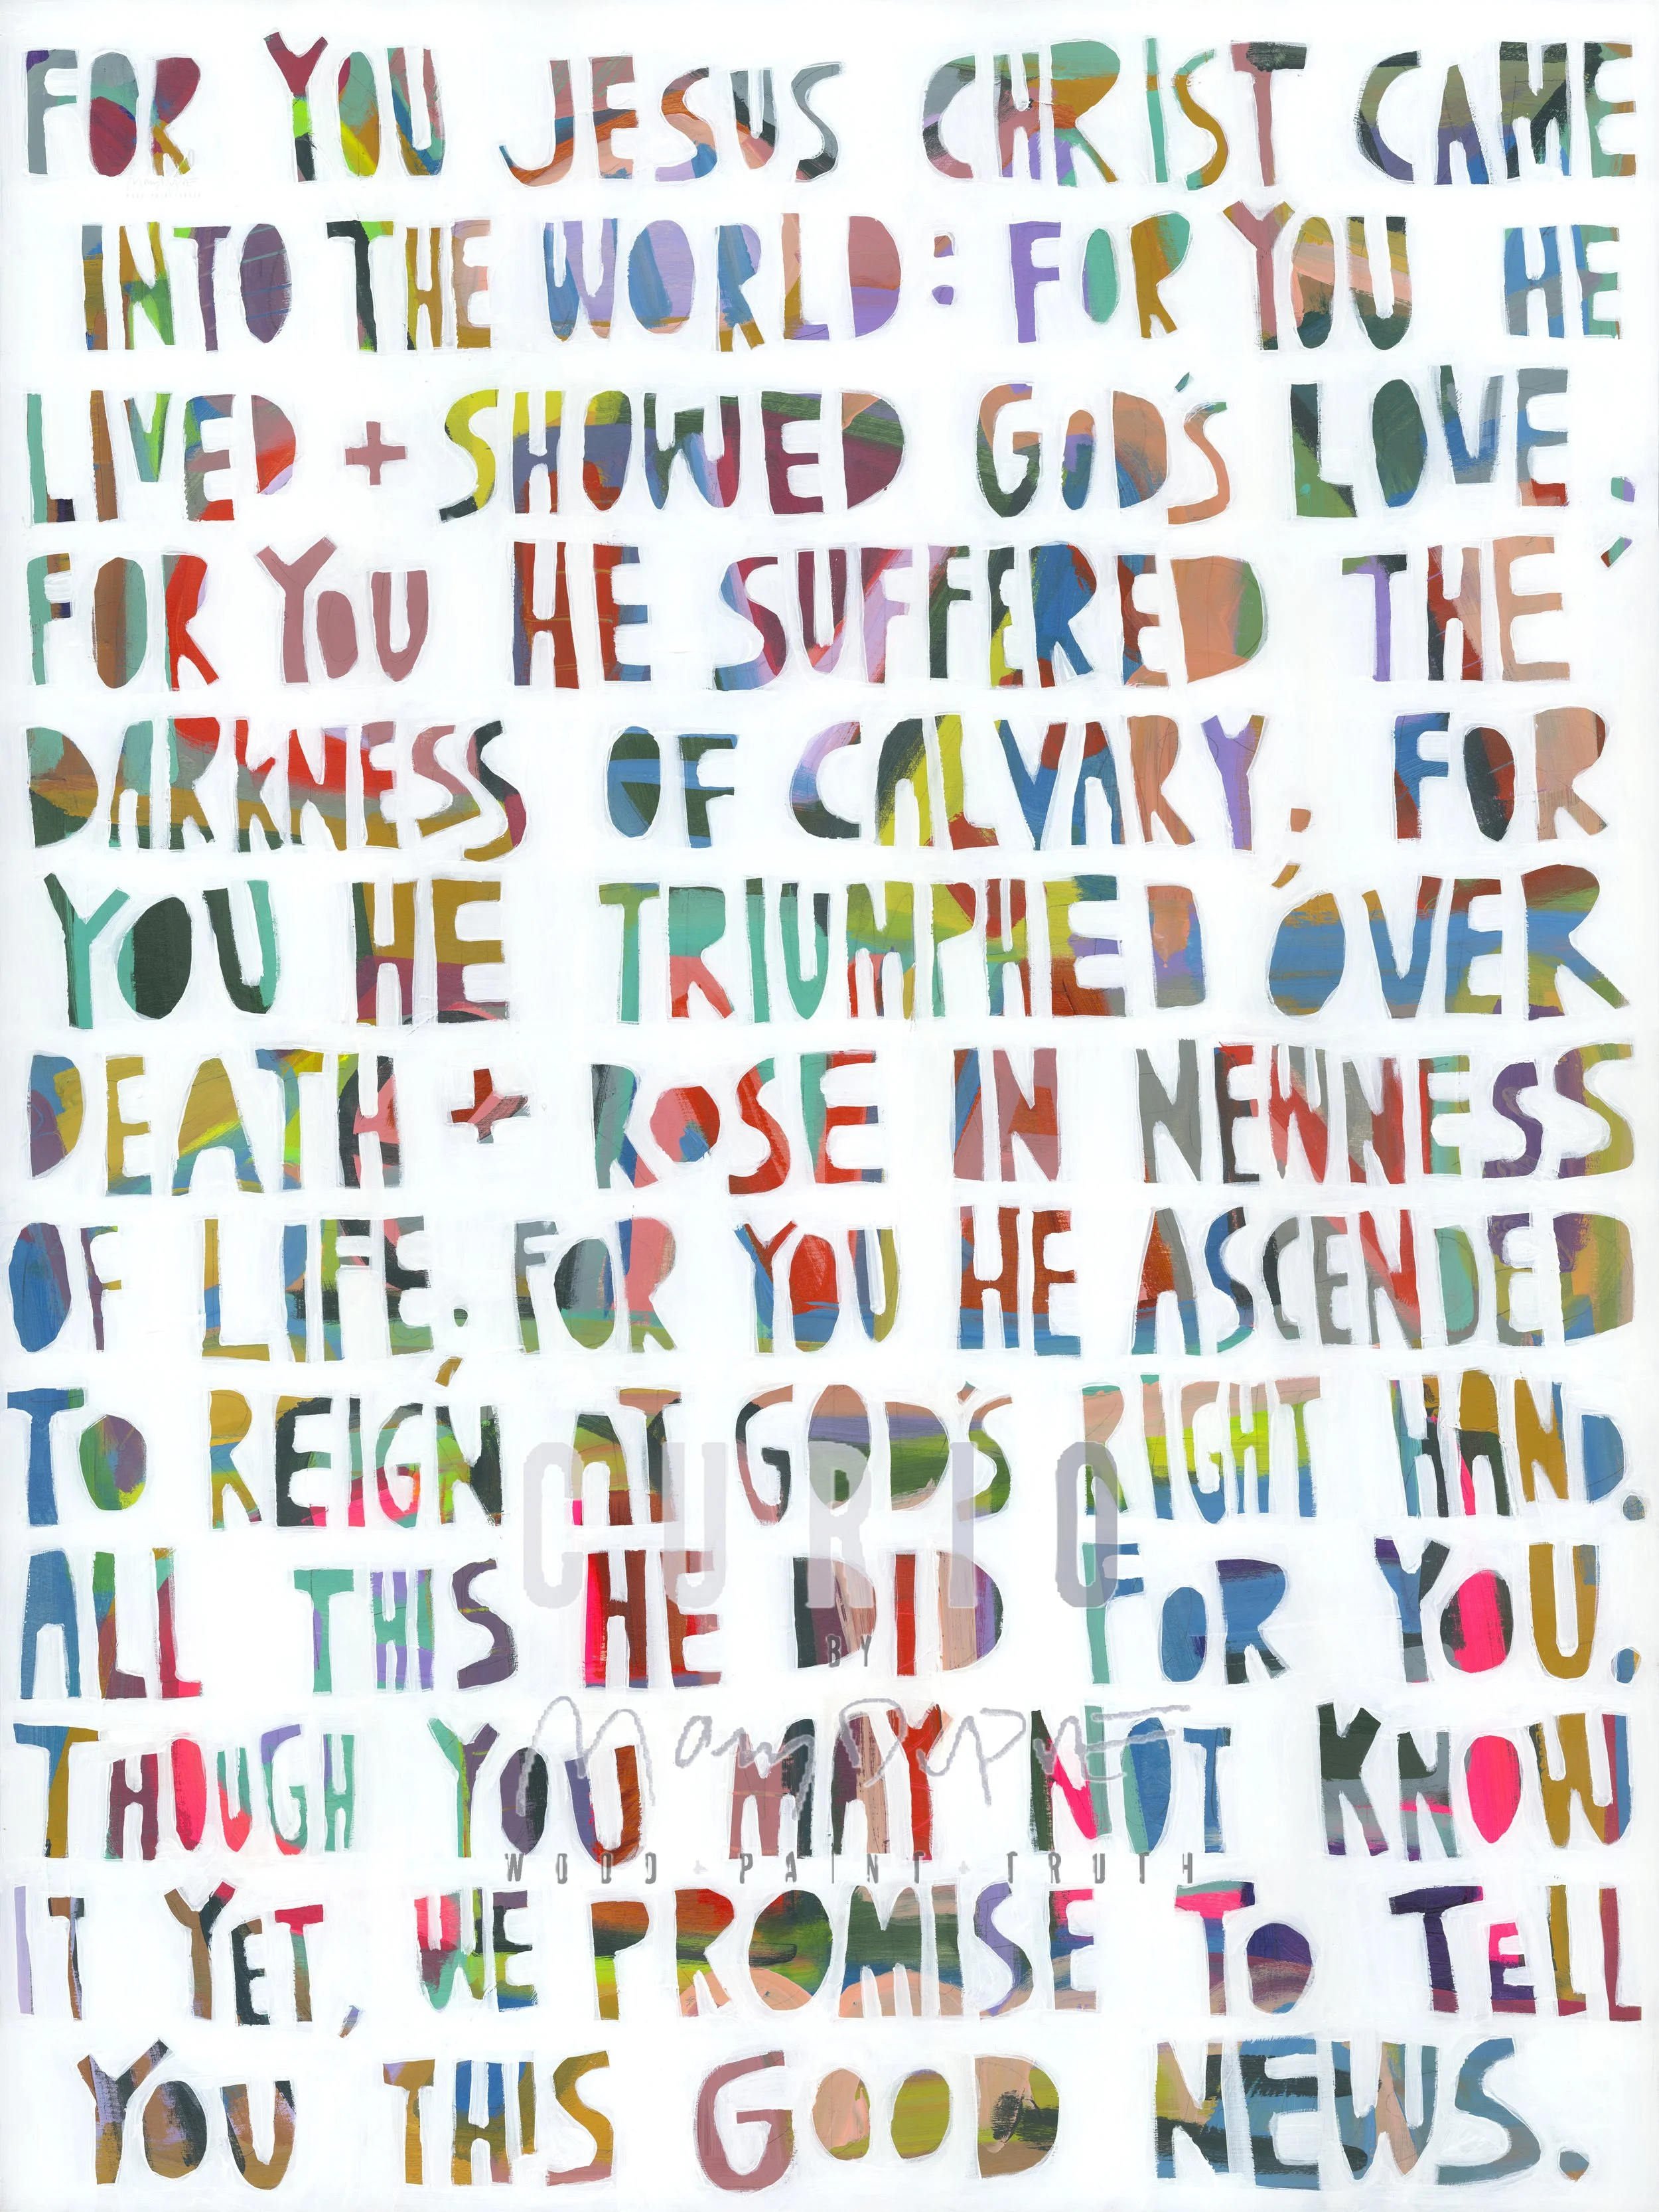 FOR YOU JESUS CHRIST CAME
INTO THE WORLD: FOR YOU HE
LIVED + SHOWED GOD'S LOVE;
FOR YOU HE SUFFERED THE
DARKNESS OF CALVARY; FOR
YOU HE TRIUMPHED OVER
DEATH + ROSE IN NEWNESS
OF LIFE; FOR YOU HE ASCENDED
TO REIGN AT GOD'S RIGHT HAND.
CURIO
ALL THIS HE DID FOR YOU.
BY
THOUGH YOU MAY NOT KNOW
WOOD + PAINT + TRUTH
IT YET, WE PROMISE TO TELL
YOU THIS GOOD NEWS.